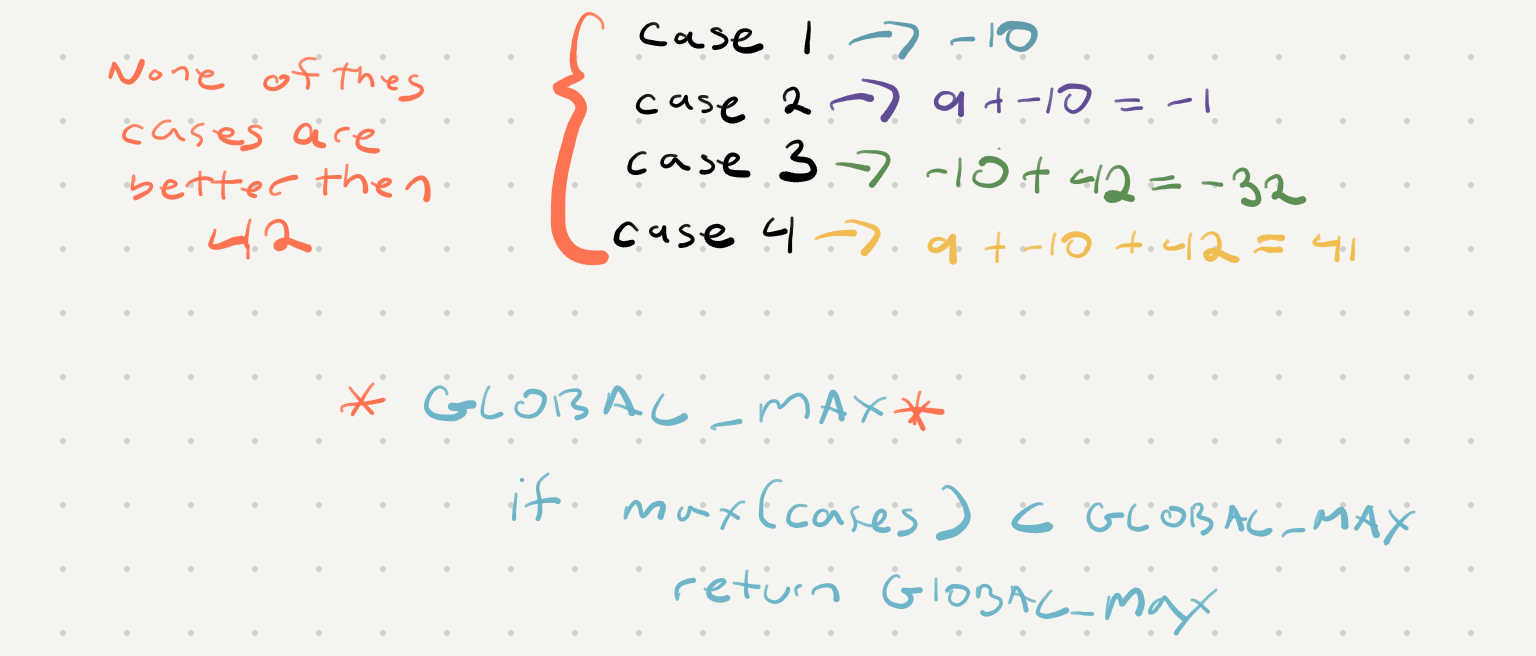 None of thes
cases are
better then
42
case 1 → -10
case 2 → 9 + -10 = -1
case 3 → -10 + 42 = -32
case 4 → 9 + -10 + 42 = 41
* GLOBAL_MAX *
if max(cases) < GLOBAL_MAX
return GlOBAL_Max